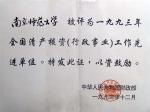 南京师范大学 被评为一九九三年
全国清产核资(行政事业)工作先
进单位。特发此证，以资鼓励。
中华人民共和国财政部
一九九三年十二月